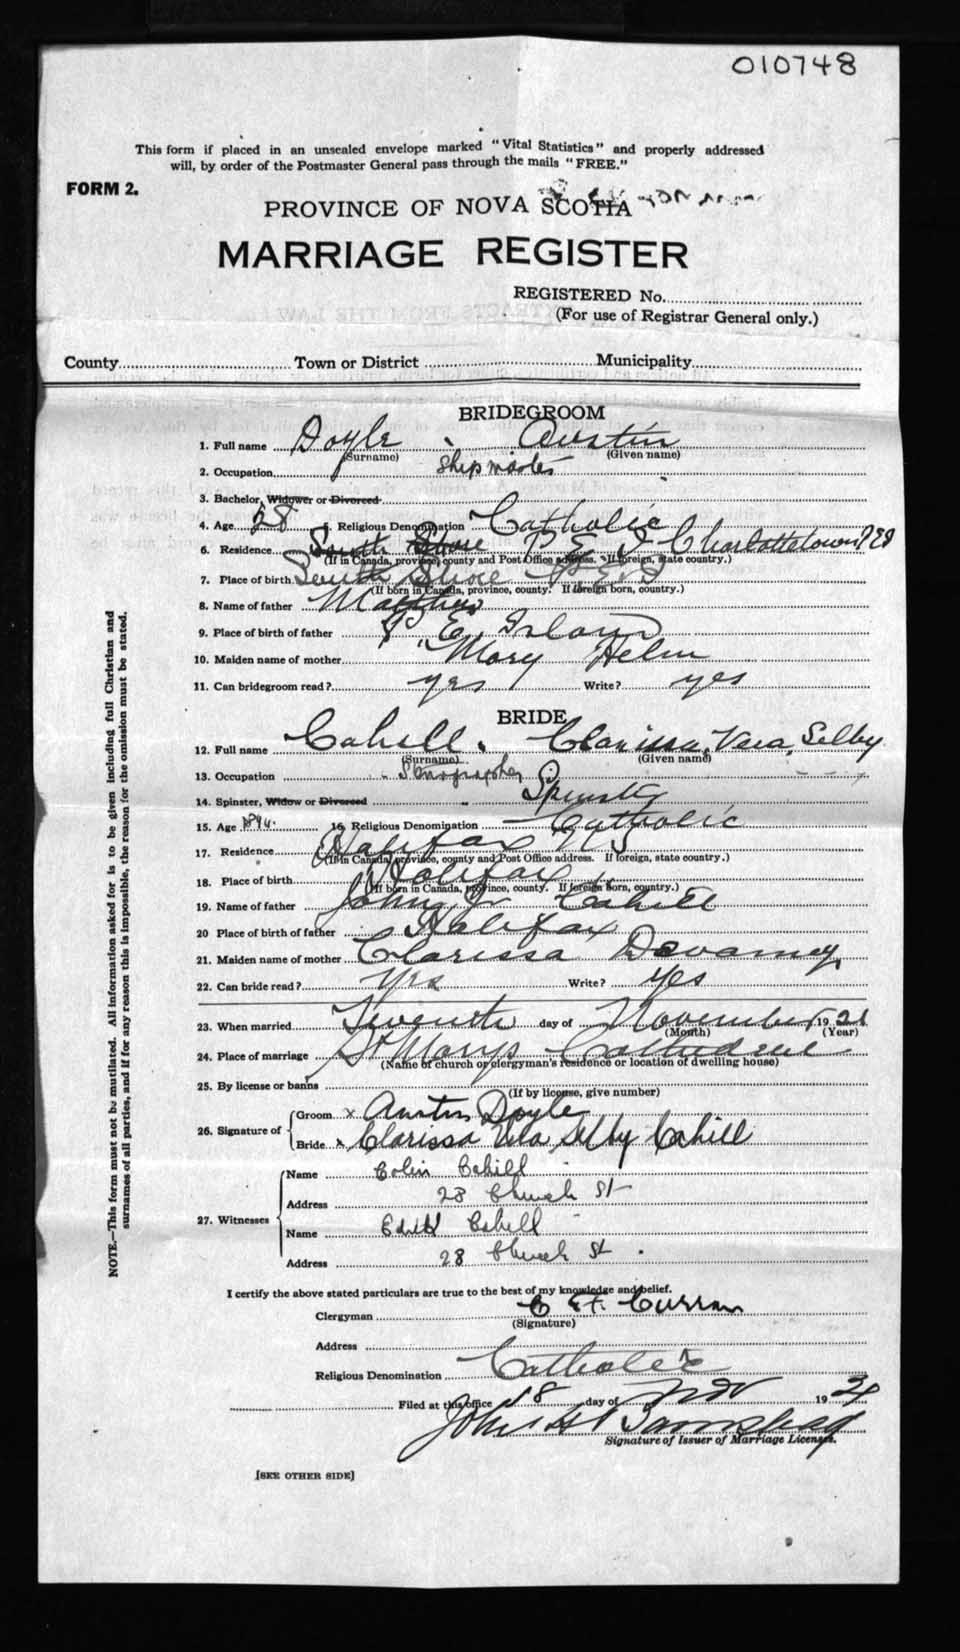 010748
This form if placed in an unsealed envelope marked "Vital Statistics" and properly addressed
will, by order of the Postmaster General pass through the mails "FREE."
FORM 2.
PROVINCE OF NOVA SCOTIA
MARRIAGE REGISTER
REGISTERED No.
(For use of Registrar General only.)
County Town or District Municipality
BRIDEGROOM
1. Full name Doyle Austin
(Surname) (Given name)
2. Occupation Shipmaster
3. Bachelor, Widower or Divorced
4. Age 28 5. Religious Denomination Catholic
6. Residence South Shore P E I Charlottetown P E I
(If in Canada, province, county and Post Office address. If foreign, state country.)
7. Place of birth South Shore P E I
(If born in Canada, province, county. If foreign born, country.)
8. Name of father Matthew
9. Place of birth of father P. E. Island
10. Maiden name of mother Mary Helen
11. Can bridegroom read? yes Write? yes
BRIDE
12. Full name Cahill. Clarissa, Vera, Selby
(Surname) (Given name)
13. Occupation Stenographer
14. Spinster, Widow or Divorced Spinster
15. Age 1894. 16. Religious Denomination Catholic
17. Residence Halifax N S
(If in Canada, province, county and Post Office address. If foreign, state country.)
18. Place of birth Halifax
(If born in Canada, province, county. If foreign born, country.)
19. Name of father John Cahill
20 Place of birth of father Halifax
21. Maiden name of mother Clarissa Devaney
22. Can bride read? Yes Write? Yes
23. When married Seventh day of November 1921
(Month) (Year)
24. Place of marriage St Marys Cathedral
(Name of church or clergyman's residence or location of dwelling house)
25. By license or banns
(If by license, give number)
26. Signature of Groom x Austin Doyle
Bride x Clarissa Vera Selby Cahill
27. Witnesses Name Colin Cahill
Address 28 Church St
Name Edith Cahill
Address 28 Church St.
I certify the above stated particulars are true to the best of my knowledge and belief.
Clergyman C. E. F. Curran
(Signature)
Address
Religious Denomination Catholic
Filed at this office 18 day of Nov 192
John H
Signature of Issuer of Marriage Licenses.
[SEE OTHER SIDE]
NOTE.—This form must not be mutilated. All information asked for is to be given including full Christian and
surnames of all parties, and if for any reason this is impossible, the reason for the omission must be stated.